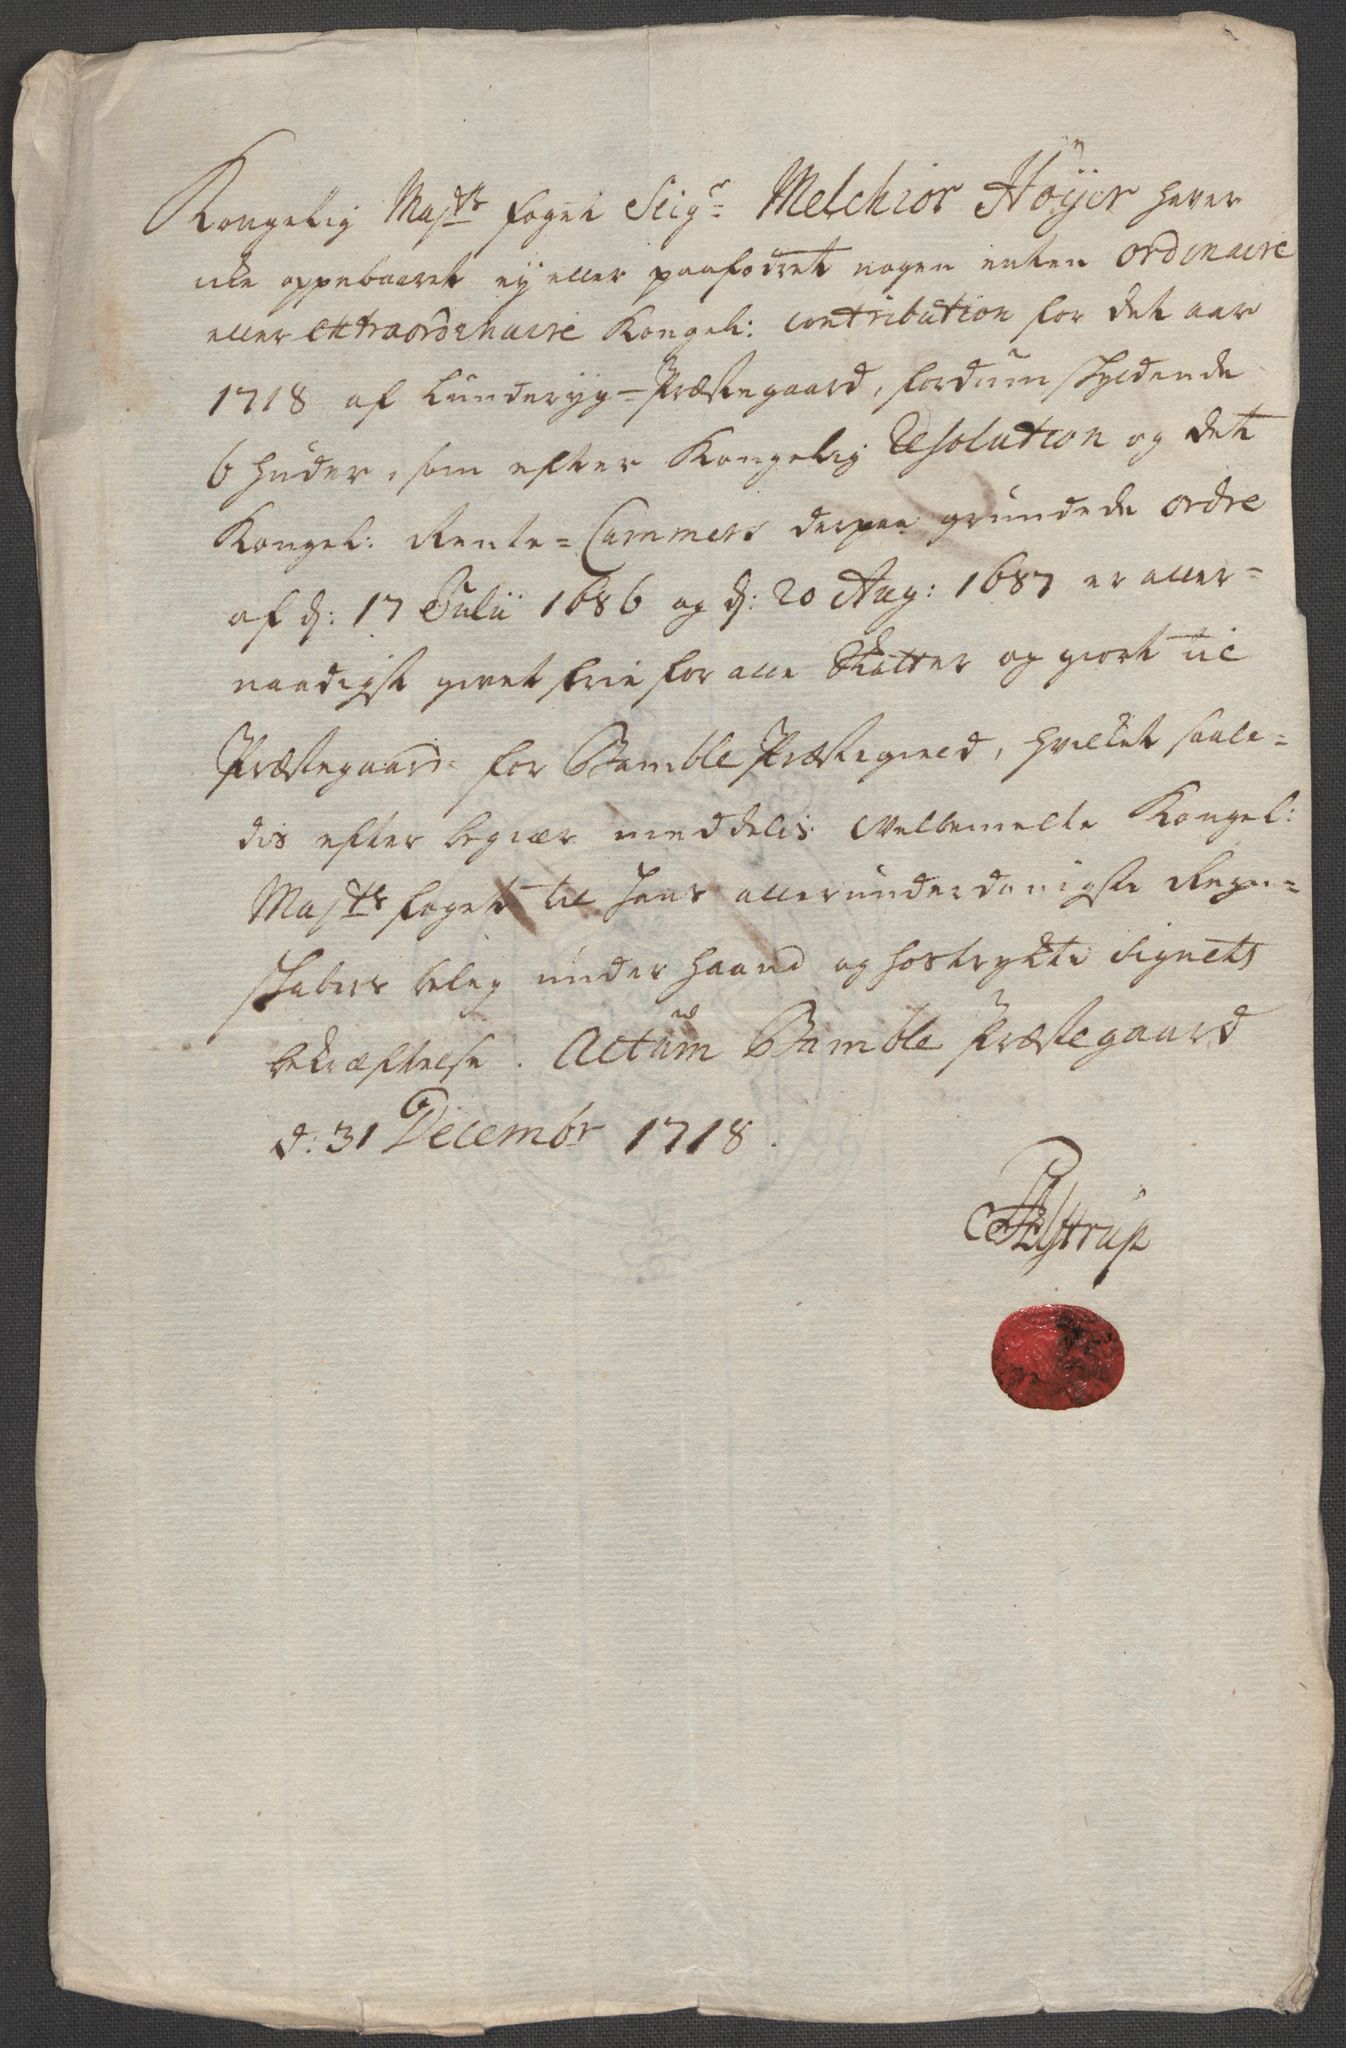 Kongelig Maj.ts foget Seig.r Melchior Höyer hever
icke oppebaaret ey eller paafodret nogen enten ordinaire
eller extraordinaire Kongel: contribution for det aar
1718 af Lunderyg=Præstegaard, fordum skyldende
6 huder, som efter Kongelig Resolution og det
Kongel: Rente=Cammers derpaa grundede ordre
af d: 17 Julii 1686 og d: 20 Aug: 1687 er aller=
naadigst givet frie for alle Skatter og giort til
Præstegaard for Bamble Præstegield, hvilket saale=
dis efter begiær meddelis Velbemelte Kongel:
Maj.ts foget til hans allerunderdanigste Regen=
skabers beleg under haand og hostrykte Signets
bekræftelse. Actum Bamble Præstegaard
d: 31 Decembr 1718.
Elstrup